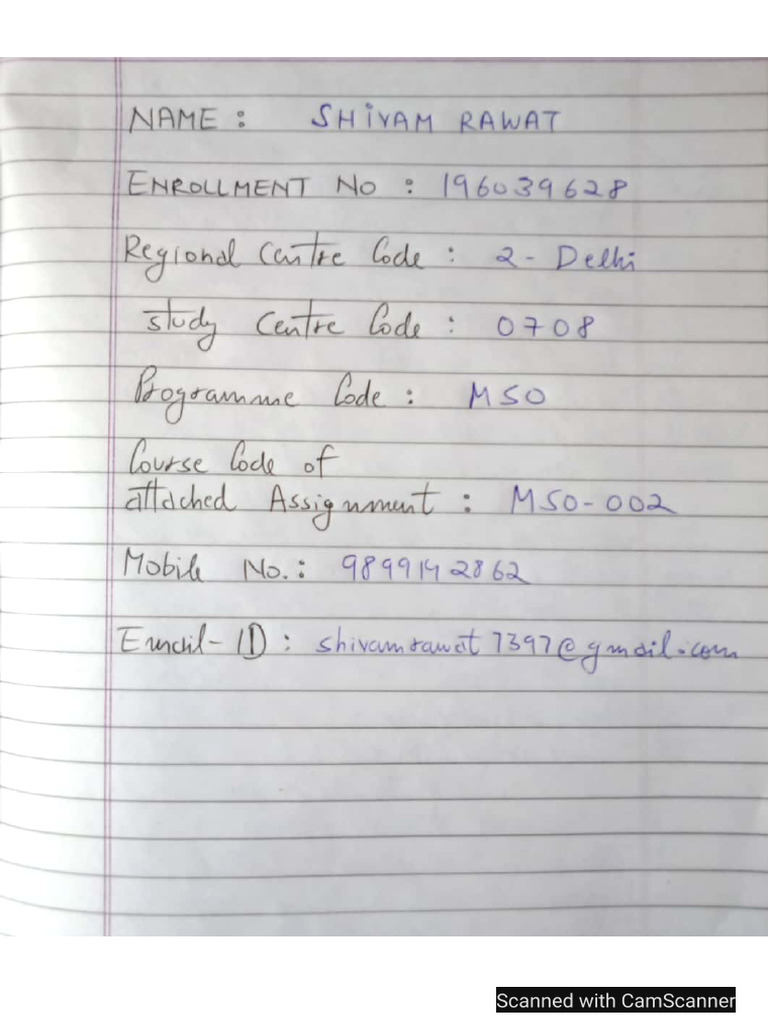 NAME : SHIVAM RAWAT
ENROLLMENT NO : 196039628
Regional Centre Code : 2 - Delhi
study Centre Code : 0708
Programme Code : MSO
Course Code of
attached Assignment : MSO-002
Mobile No. : 9899142862
Email-ID : shivamrawat7397@gmail.com
Scanned with CamScanner